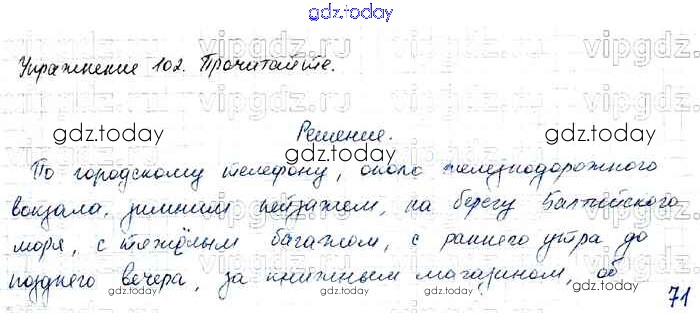 gdz.today
Упражнение 102. Прочитайте.
Решение.
По городскому телефону, около железнодорожного
вокзала, зимним пейзажем, на берегу Балтийского
моря, с тяжёлым багажом, с раннего утра до
позднего вечера, за книжным магазином, об
71
vipgdz.ru
gdz.today
gdz.today
gdz.today
gdz.today
gdz.today
gdz.today
gdz.today
gdz.today